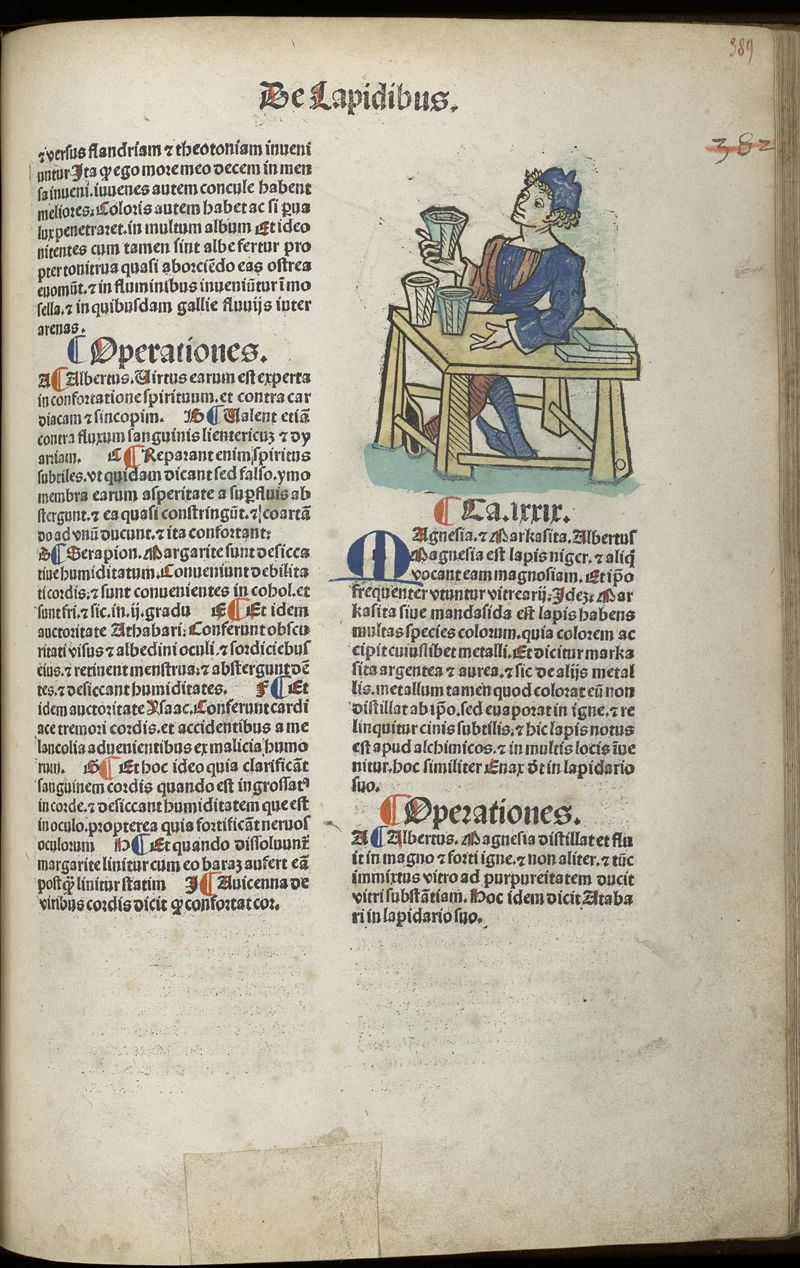 389
De Lapidibus.
382
⁊ versus flandriam ⁊ theotoniam inueni
untur Ita ꝙ ego more meo decem in men
sa inueni. iuuenes autem concule habent
meliores: Coloris autem habet ac si ꝑua
lux penetraret. in multum album Et ideo
nitentes cum tamen sint albe fertur pro
pter tonitrua quasi aborciēdo eas ostrea
euomūt. ⁊ in fluminibus inueniūtur ī mo
sella. ⁊ in quibusdam gallie fluuijs inter
arenas.
Operationes.
A Albertus. Uirtus earum est experta
in confortatione spirituum. et contra car
diacam ⁊ sincopim. B Ualent etiā
contra fluxum sanguinis lientericuꝫ ⁊ dy
arriam. C Reparant enim spiritus
subtiles. vt quidam dicant sed falso. ymo
membra earum asperitate a suꝑfluis ab
stergunt. ⁊ ea quasi constringūt. ⁊ coartā
do ad vnū ducunt. ⁊ ita confortant:
D Serapion. Margarite sunt desicca
tiue humiditatum. Conueniunt debilita
ti cordis: ⁊ sunt conuenientes in cohol. et
sunt fri. ⁊ sic. in. ij. gradu E Et idem
auctoritate Athabari: Conferunt obscu
ritati visus ⁊ albedini oculi. ⁊ sordiciebus
eius. ⁊ retinent menstrua: ⁊ abstergunt dē
tes. ⁊ desiccant humiditates. F Et
idem auctoritate Ysaac. Conferunt cardi
ace tremori cordis. et accidentibus a me
lancolia aduenientibus ex malicia humo
rum. G Et hoc ideo quia clarificāt
sanguinem cordis quando est ingrossatꝰ
in corde. ⁊ desiccant humiditatem que est
in oculo. propterea quia fortificāt neruos
oculorum H Et quando dissoluunt᷑
margarite linitur cum eo baraꝫ aufert eā
postꝙ̄ linitur statim I Auicenna de
viribus cordis dicit ꝙ confortat cor.
Ca. lxxix.
MAgnesia. ⁊ Markasita. Albertus
Magnesia est lapis niger. ⁊ aliqͥ
vocant eam magnosiam. Et ip̄o
frequenter vtuntur vitrearij: Ideꝫ: Mar
kasita siue mandasida est lapis habens
multas species colorum. quia colorem ac
cipit cuiuslibet metalli. Et dicitur marka
sita argentea ⁊ aurea. ⁊ sic de alijs metal
lis. metallum tamen quod colorat eū non
distillat ab ip̄o. sed euaporat in igne. ⁊ re
linquitur cinis subtilis: ⁊ hic lapis notus
est apud alchimicos. ⁊ in multis locis īue
nitur. hoc similiter Enax dr̄ in lapidario
suo.
Operationes.
A Albertus. Magnesia distillat et flu
it in magno ⁊ forti igne. ⁊ non aliter. ⁊ tūc
immixtus vitro ad purpureitatem ducit
vitri substātiam. Hoc idem dicit Ataba
ri in lapidario suo.